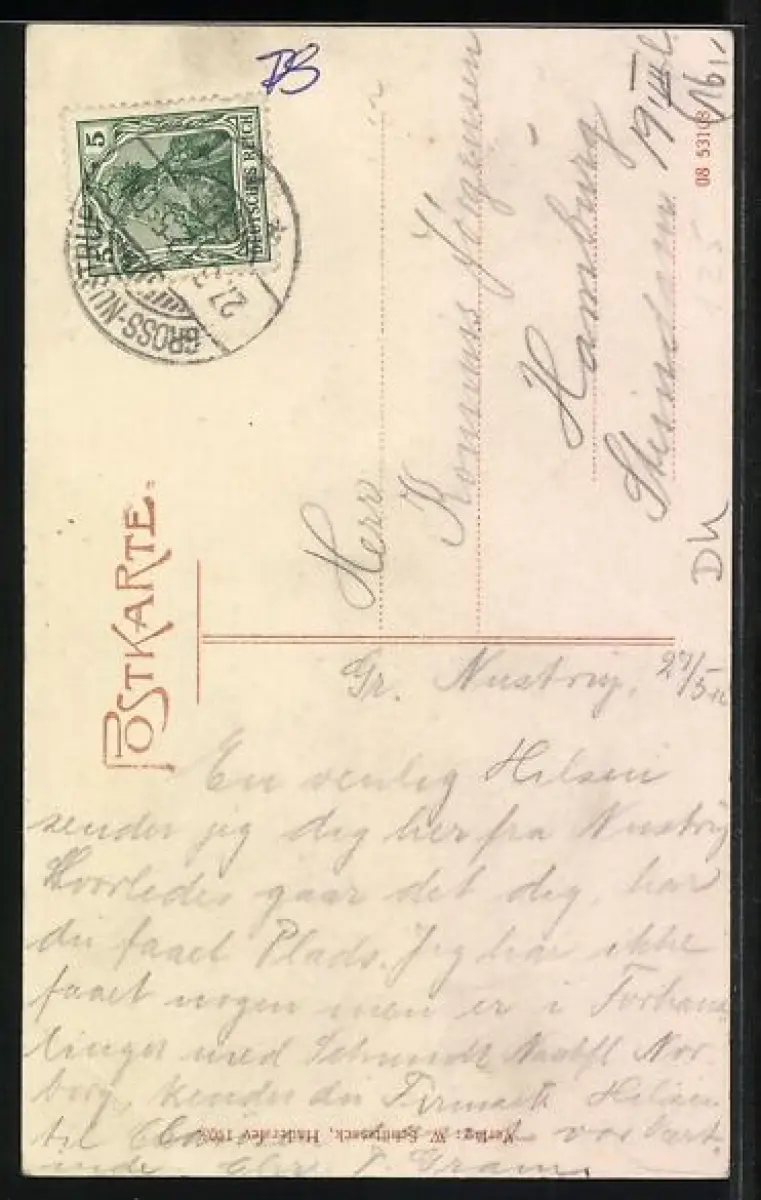 DS
5 5
DEUTSCHES REICH
GROSS-NUSTRUP
27.
POSTKARTE.
Herr
Kommis Jörgensen
Hamburg
Steindamm 19 III
08 53108
125
Gr. Nustrup, 27/5
En venlig Hilsen
sender jeg dig her fra Nustrup
Hvorledes gaar det dig, har
du faaet Plads. Jeg har ikke
faaet nogen men er i Forhand
linger med Schmidt Nor
borg, kender du Firmaet. Hilsen
til
J. Gram.
Verlag: W. Schützsack, Haderslev